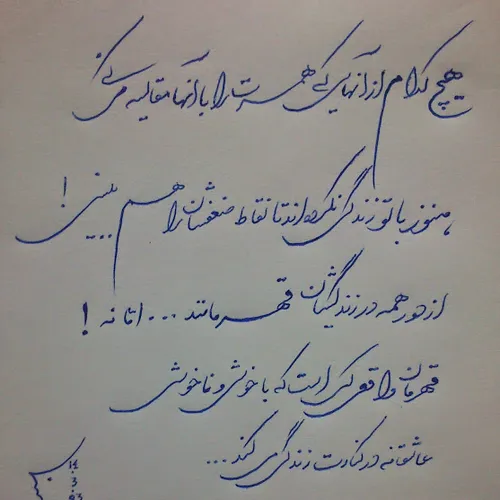 هیچ کدام از آنهایی که همسرت را با آنها مقایسه می کنی
هنوز با تو زندگی نکرده اند تا نقاط ضعفشان را هم ببینی !
از دور همه در زندگیشان قهرمانند ... اما نه !
قهرمان واقعی کسی است که با خوشی و ناخوشی
عاشقانه در کنارت زندگی می کند ...